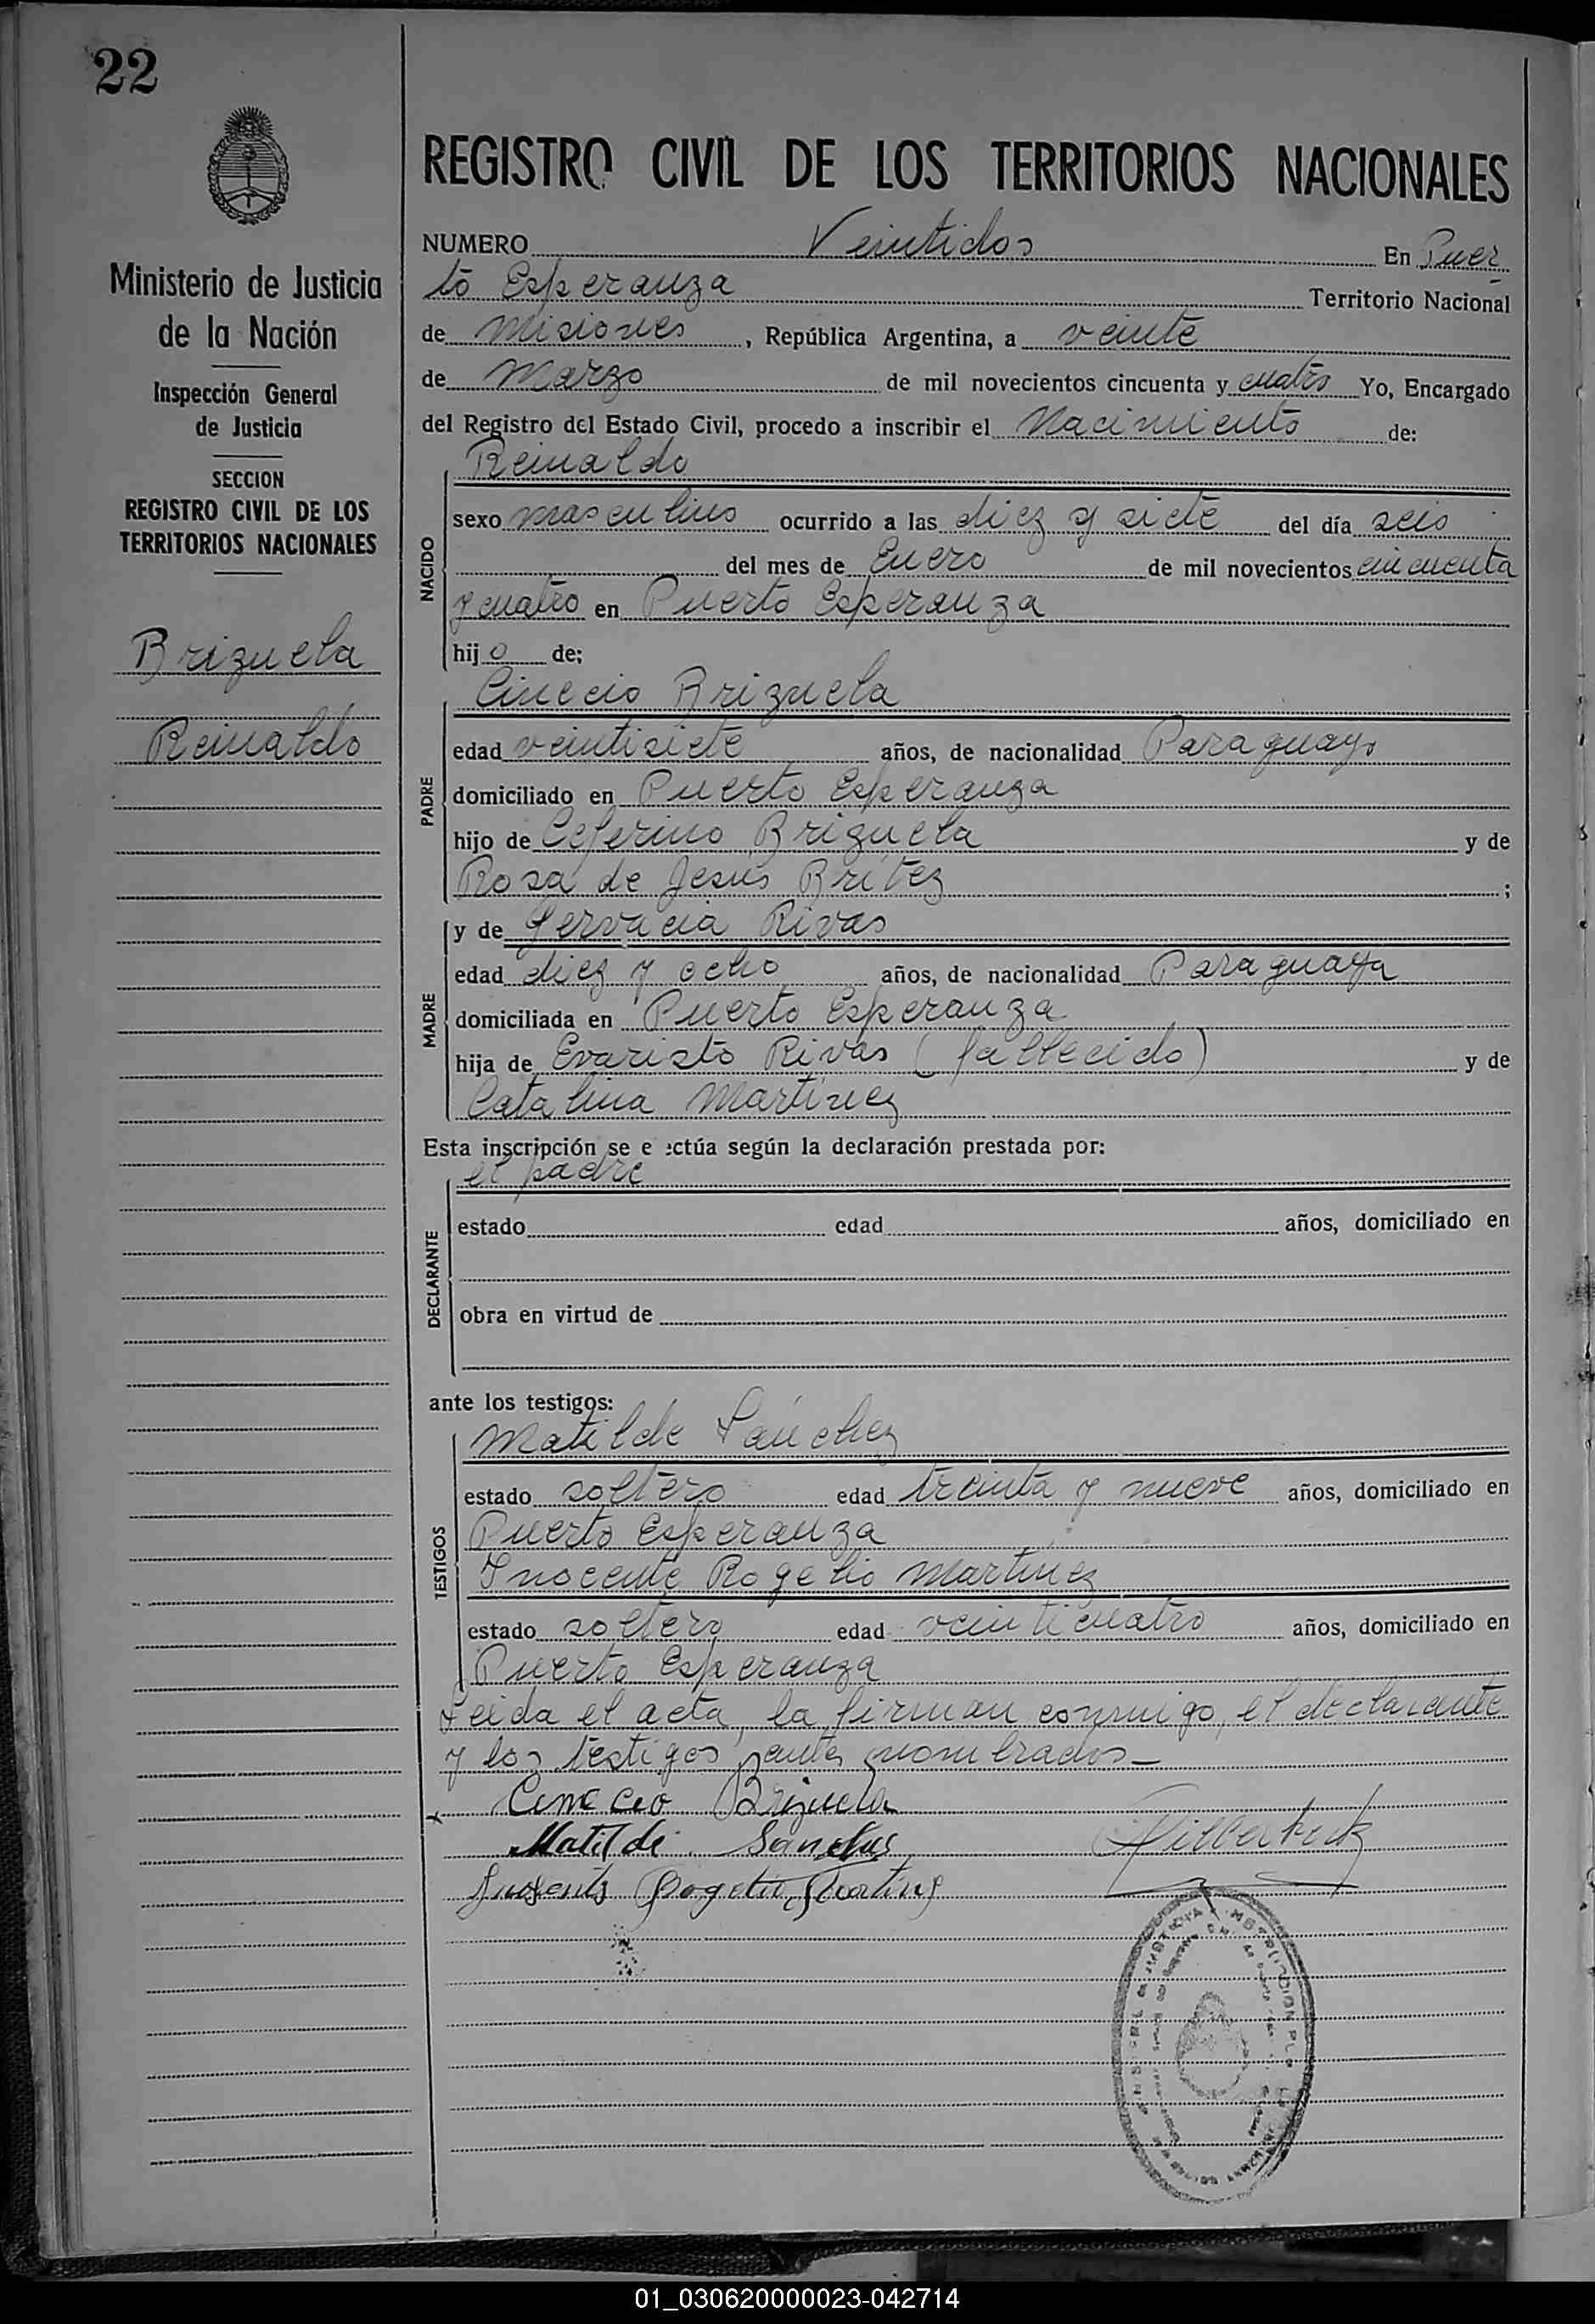 22
Ministerio de Justicia
de la Nación
Inspección General
de Justicia
SECCION
REGISTRO CIVIL DE LOS
TERRITORIOS NACIONALES
Brizuela
Reinaldo
REGISTRO CIVIL DE LOS TERRITORIOS NACIONALES
NUMERO Veintidos En Puer
to Esperanza Territorio Nacional
de Misiones, República Argentina, a veinte
de Marzo de mil novecientos cincuenta y cuatro Yo, Encargado
del Registro del Estado Civil, procedo a inscribir el Nacimiento de:
NACIDO
Reinaldo
sexo masculino ocurrido a las diez y siete del día seis
del mes de Enero de mil novecientos cincuenta
y cuatro en Puerto Esperanza
hijo de:
PADRE
Cinecio Brizuela
edad veintisiete años, de nacionalidad Paraguayo
domiciliado en Puerto Esperanza
hijo de Ceferino Brizuela y de
Rosa de Jesús Britez ;
MADRE
y de Gervacia Rivas
edad diez y ocho años, de nacionalidad Paraguaya
domiciliada en Puerto Esperanza
hija de Evaristo Rivas (fallecido) y de
Catalina Martinez
Esta inscripción se e ectúa según la declaración prestada por:
DECLARANTE
el padre
estado edad años, domiciliado en
obra en virtud de
ante los testigos:
TESTIGOS
Matilde Sánchez
estado soltero edad treinta y nueve años, domiciliado en
Puerto Esperanza
Inocente Rogelio Martinez
estado soltero edad veinticuatro años, domiciliado en
Puerto Esperanza
Leida el acta, la firman conmigo, el declarante
y los testigos antes nombrados—
Cinecio Brizuela
Matilde Sanches
Rogelio Martinez
01_030620000023-042714